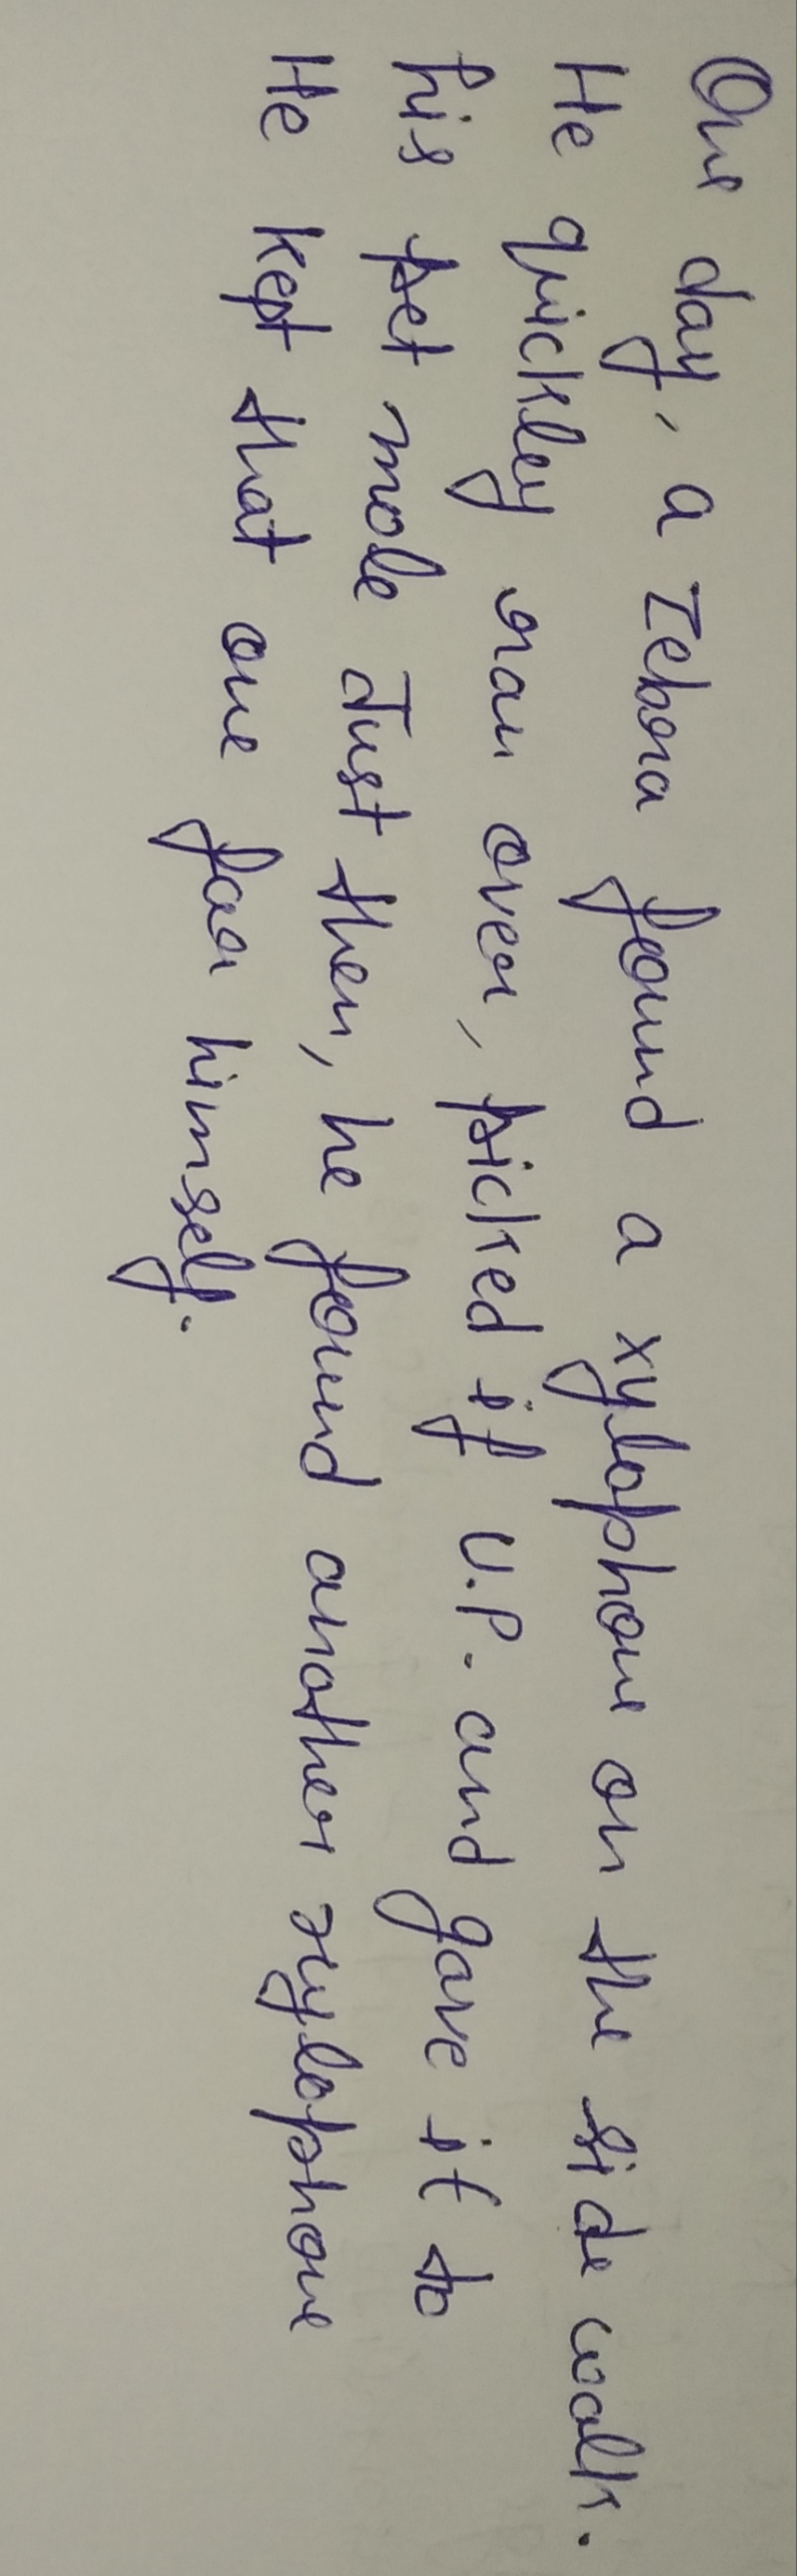 One day, a zebra found a xylophone on the side walk.
He quickley ran over, picked if U.P. and gave it to
his pet mole Just then, he found another xylophone
He kept that one for himself.